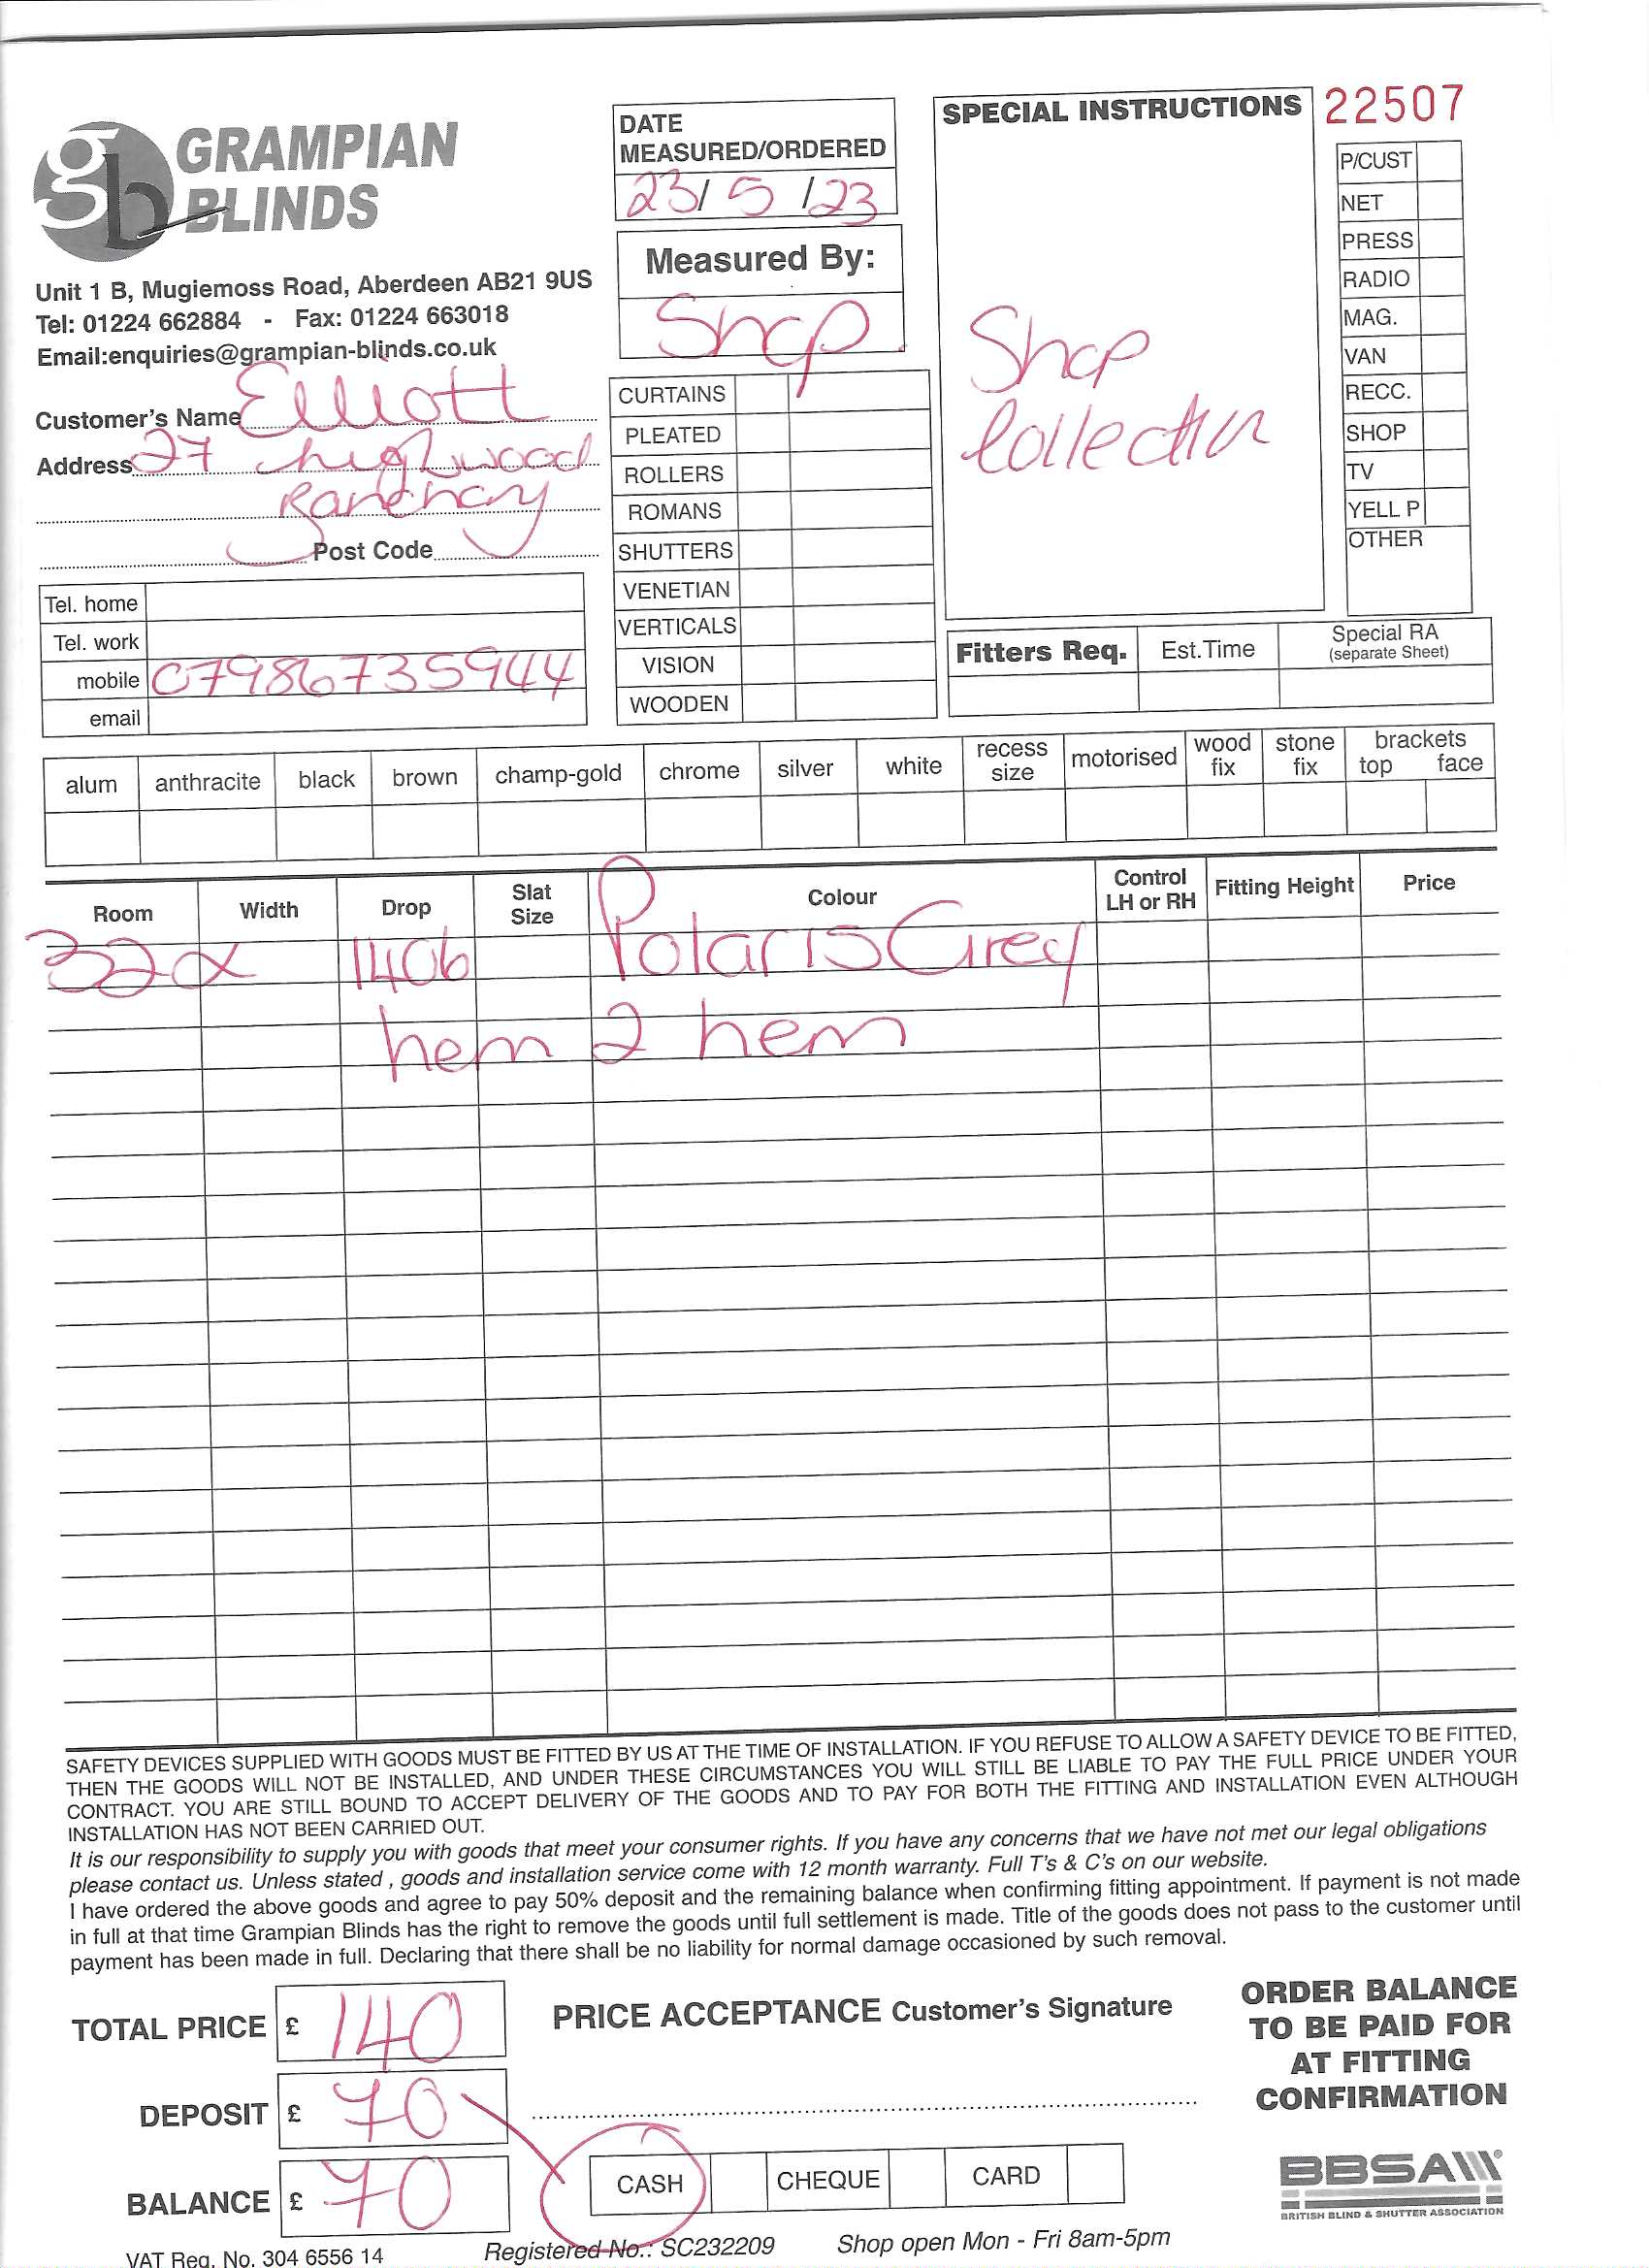 GRAMPIAN
BLINDS
Unit 1 B, Mugiemoss Road, Aberdeen AB21 9US
Tel: 01224 662884 - Fax: 01224 663018
Email:enquiries@grampian-blinds.co.uk
Customer's Name Elliott
Address 27
Post Code
Tel. home
Tel. work
mobile 07986735944
email
DATE
MEASURED/ORDERED
23/ 5 /23
Measured By:
Shop
CURTAINS
PLEATED
ROLLERS
ROMANS
SHUTTERS
VENETIAN
VERTICALS
VISION
WOODEN
SPECIAL INSTRUCTIONS
Shop
Collection
22507
P/CUST
NET
PRESS
RADIO
MAG.
VAN
RECC.
SHOP
TV
YELL P
OTHER
Fitters Req. Est.Time Special RA
(separate Sheet)
alum anthracite black brown champ-gold chrome silver white recess size motorised wood fix stone fix brackets top face
Room Width Drop Slat Size Colour Control LH or RH Fitting Height Price
32 x 1406 Polaris Grey
hem 2 hem
SAFETY DEVICES SUPPLIED WITH GOODS MUST BE FITTED BY US AT THE TIME OF INSTALLATION. IF YOU REFUSE TO ALLOW A SAFETY DEVICE TO BE FITTED,
THEN THE GOODS WILL NOT BE INSTALLED, AND UNDER THESE CIRCUMSTANCES YOU WILL STILL BE LIABLE TO PAY THE FULL PRICE UNDER YOUR
CONTRACT. YOU ARE STILL BOUND TO ACCEPT DELIVERY OF THE GOODS AND TO PAY FOR BOTH THE FITTING AND INSTALLATION EVEN ALTHOUGH
INSTALLATION HAS NOT BEEN CARRIED OUT.
It is our responsibility to supply you with goods that meet your consumer rights. If you have any concerns that we have not met our legal obligations
please contact us. Unless stated , goods and installation service come with 12 month warranty. Full T's & C's on our website.
I have ordered the above goods and agree to pay 50% deposit and the remaining balance when confirming fitting appointment. If payment is not made
in full at that time Grampian Blinds has the right to remove the goods until full settlement is made. Title of the goods does not pass to the customer until
payment has been made in full. Declaring that there shall be no liability for normal damage occasioned by such removal.
TOTAL PRICE £ 140
DEPOSIT £ 70
BALANCE £ 70
PRICE ACCEPTANCE Customer's Signature
CASH CHEQUE CARD
ORDER BALANCE
TO BE PAID FOR
AT FITTING
CONFIRMATION
BBSA
BRITISH BLIND & SHUTTER ASSOCIATION
VAT Reg. No. 304 6556 14 Registered No.: SC232209 Shop open Mon - Fri 8am-5pm